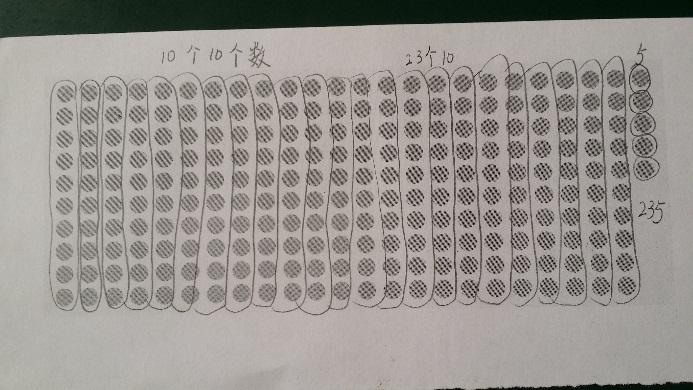 10个10个数
23个10
5
235